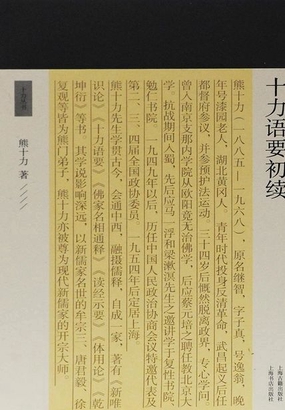 十力语要初续
上海古籍出版社
上海书店出版社
熊十力（一八八五—一九六八），原名继智，字子真，号逸翁，晚
年号漆园老人，湖北黄冈人。青年时代投身反清革命，武昌起义后任
都督府参议，并参预护法运动。三十四岁后慨然脱离政界，专心学问，
曾入南京支那内学院从欧阳竟无治佛学，后应蔡元培之聘任教北京大
学。抗战期间入蜀，先后应马一浮和梁漱溟先生之邀讲学于复性书院、
勉仁书院。一九四九年以后，历任中国人民政治协商会议特邀代表及
第二、三、四届全国政协委员。一九五四年后定居上海。
熊十力先生学贯古今，会通中西，融摄儒释，自成一家，著有《新唯
识论》《十力语要》《佛家名相通释》《读经示要》《体用论》《乾
坤衍》等书。其学说影响深远，以新儒家名世的牟宗三、唐君毅、徐
复观等皆为熊门弟子，熊十力亦被尊为现代新儒家的开宗大师。
十力丛书
熊十力 著